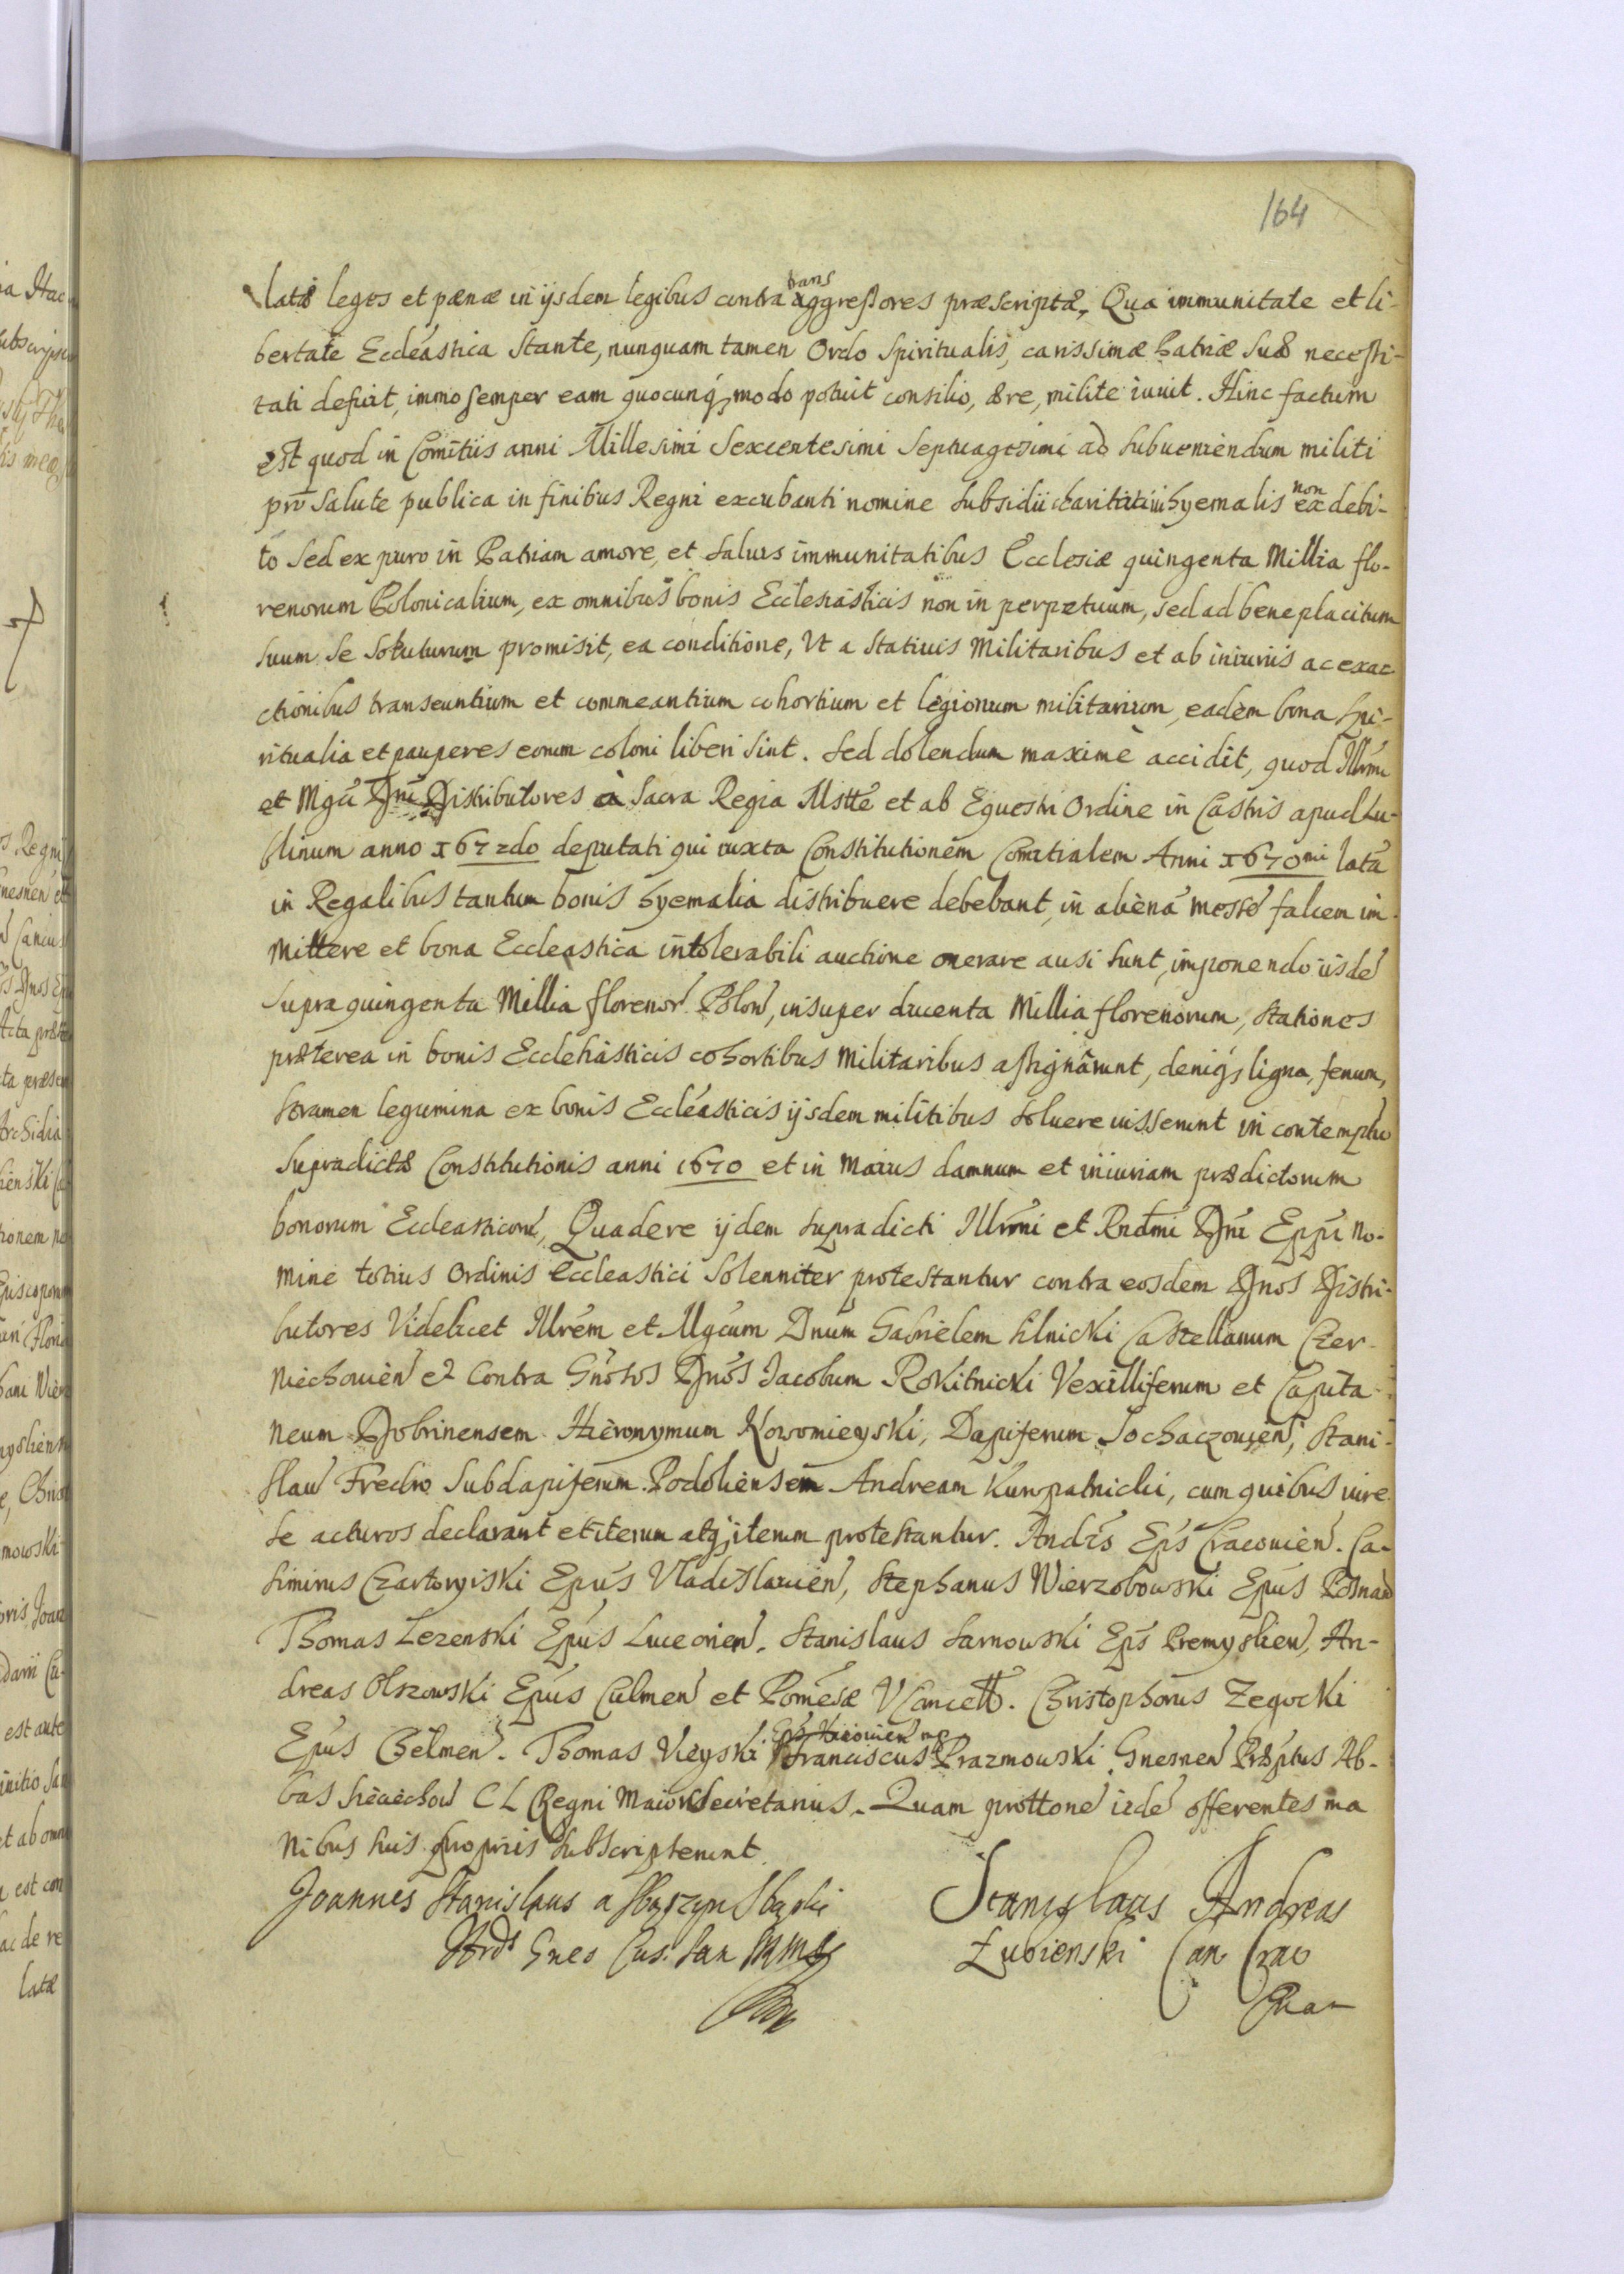 164
latæ leges et pænæ in ijsdem legibus contra transgreßores præscriptæ, Qua immunitate et li-
bertate Eccleástica Stante, nunquam tamen Ordo Spiritualis, carissimæ Patriæ Suæ necessi-
tati defuit, immo semper eam quocunq, modo potuit consilio, ære, milite iuuit. Hinc factum
est quod in Comitiis anni Millesimi Sexcentesimi Septuagesimi ad Subueniendum militi
pro Salute publica in finibus Regni excubanti nomine Subsidii charitatiui hyemalis non ex debi-
to Sed ex puro in Patriam amore, et Saluis immunitatibus Ecclesiæ quingenta Millia flo-
renorum Polonicalium, ex omnibus bonis Ecclesiasticis non in perpetuum, sed ad beneplacitum
suum Se Soluturum promisit, ea conditione, Vt a Statiuis Militaribus et ab iniuriis ac exac-
ctionibus transeuntium et commeantium cohortium et legionum militarium, eadem bona Spi-
ritualia et pauperes eorum coloni liberi Sint. Sed dolendum maximè accidit, quod Illrmi
et Mgci Dni Distributores à Sacra Regia Mstte et ab Equestri Ordine in Castris apud Lu-
blinum anno 1672do deputati qui iuxta Constitutionem Comitialem Anni 1670mi lata
in Regalibus tantum bonis hyemalia distribuere debebant, in aliena messe falcem im-
mittere et bona Eccleastica intolerabili auctione onerare ausi Sunt, imponendo iisdẽ
Supra quingenta Millia florenor Polon, insuper ducenta Millia florenorum, Stationes
præterea in bonis Ecclesiasticis cohortibus Militaribus assignârunt, deniq, ligna, fenum,
Stramen legumina ex bonis Eccleásticis ijsdem militibus Soluere iusserunt in contemptu
Supradictæ Constitutionis anni 1670 et in Maius damnum et iniuriam prædictorum
bonorum Eccleasticorũ, Quadere ijdem Supradicti Illrmi et Rndmi Dni Eppi No-
mine totius Ordinis Eccleastici Solenniter protestantur contra eosdem Dnos Distri-
butores Videlicet Illrem et Mgcum Dnum Gabrielem Silnicki Castellanum Czer-
niechouien et Contra Gnosos Dnos Jacobum Rokitnicki Vexilliferum et Capita-
neum Dobrinensem Hieronymum Nowomieyski, Dapiferum Sochaczouien, Stani-
slau Fredro Subdapiferum Podoliensem Andream Kuropatnicki, cum quibus iure
Se acturos declarant et iterum atq, iterum protestantur. Andrs Eps Cracouien. Ca-
simirus Czartoryiski Epus Vladislauien, Stephanus Wierzobowski Epus Posnan
Thomas Lezenski Epus Luceorien. Stanislaus Sarnowski Eps Premyslien, An-
dreas Olszowski Epus Culmen et Pomesæ VCancell. Christophorus Zegocki
Epus Chelmen. Thomas Vieyski Eps Kiouien mp Franciscus Prazmowski Gnesnen Præptus Ab-
bas Sieciechou CL Regni Maior Secretarius. Quam prottone iidẽ offerentes ma
nibus Suis propriis Subscripserunt.
Joannes Stanislaus a Sbąszyn Sbąski
Gnes Cus. San
Stanislaus Andreas
Łubienski Can Crac